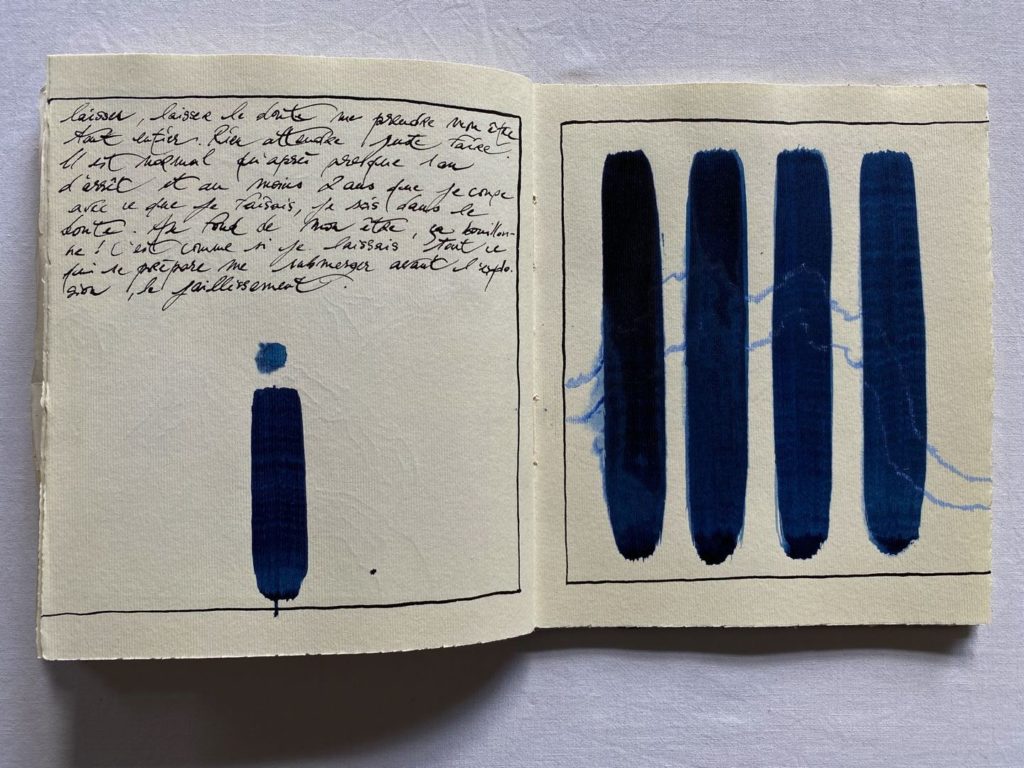 laisser, laisser le doute me prendre mon être
tout entier. Rien attendre juste faire.
Il est normal qu'après presque 1 an
d'arrêt et au moins 2 ans que je coupe
avec ce que je faisais, je sois dans le
doute. Au fond de mon être, ça bouillon-
ne ! C'est comme si je laissais tout ce
qui se prépare me submerger avant l'explo-
sion, le jaillissement.